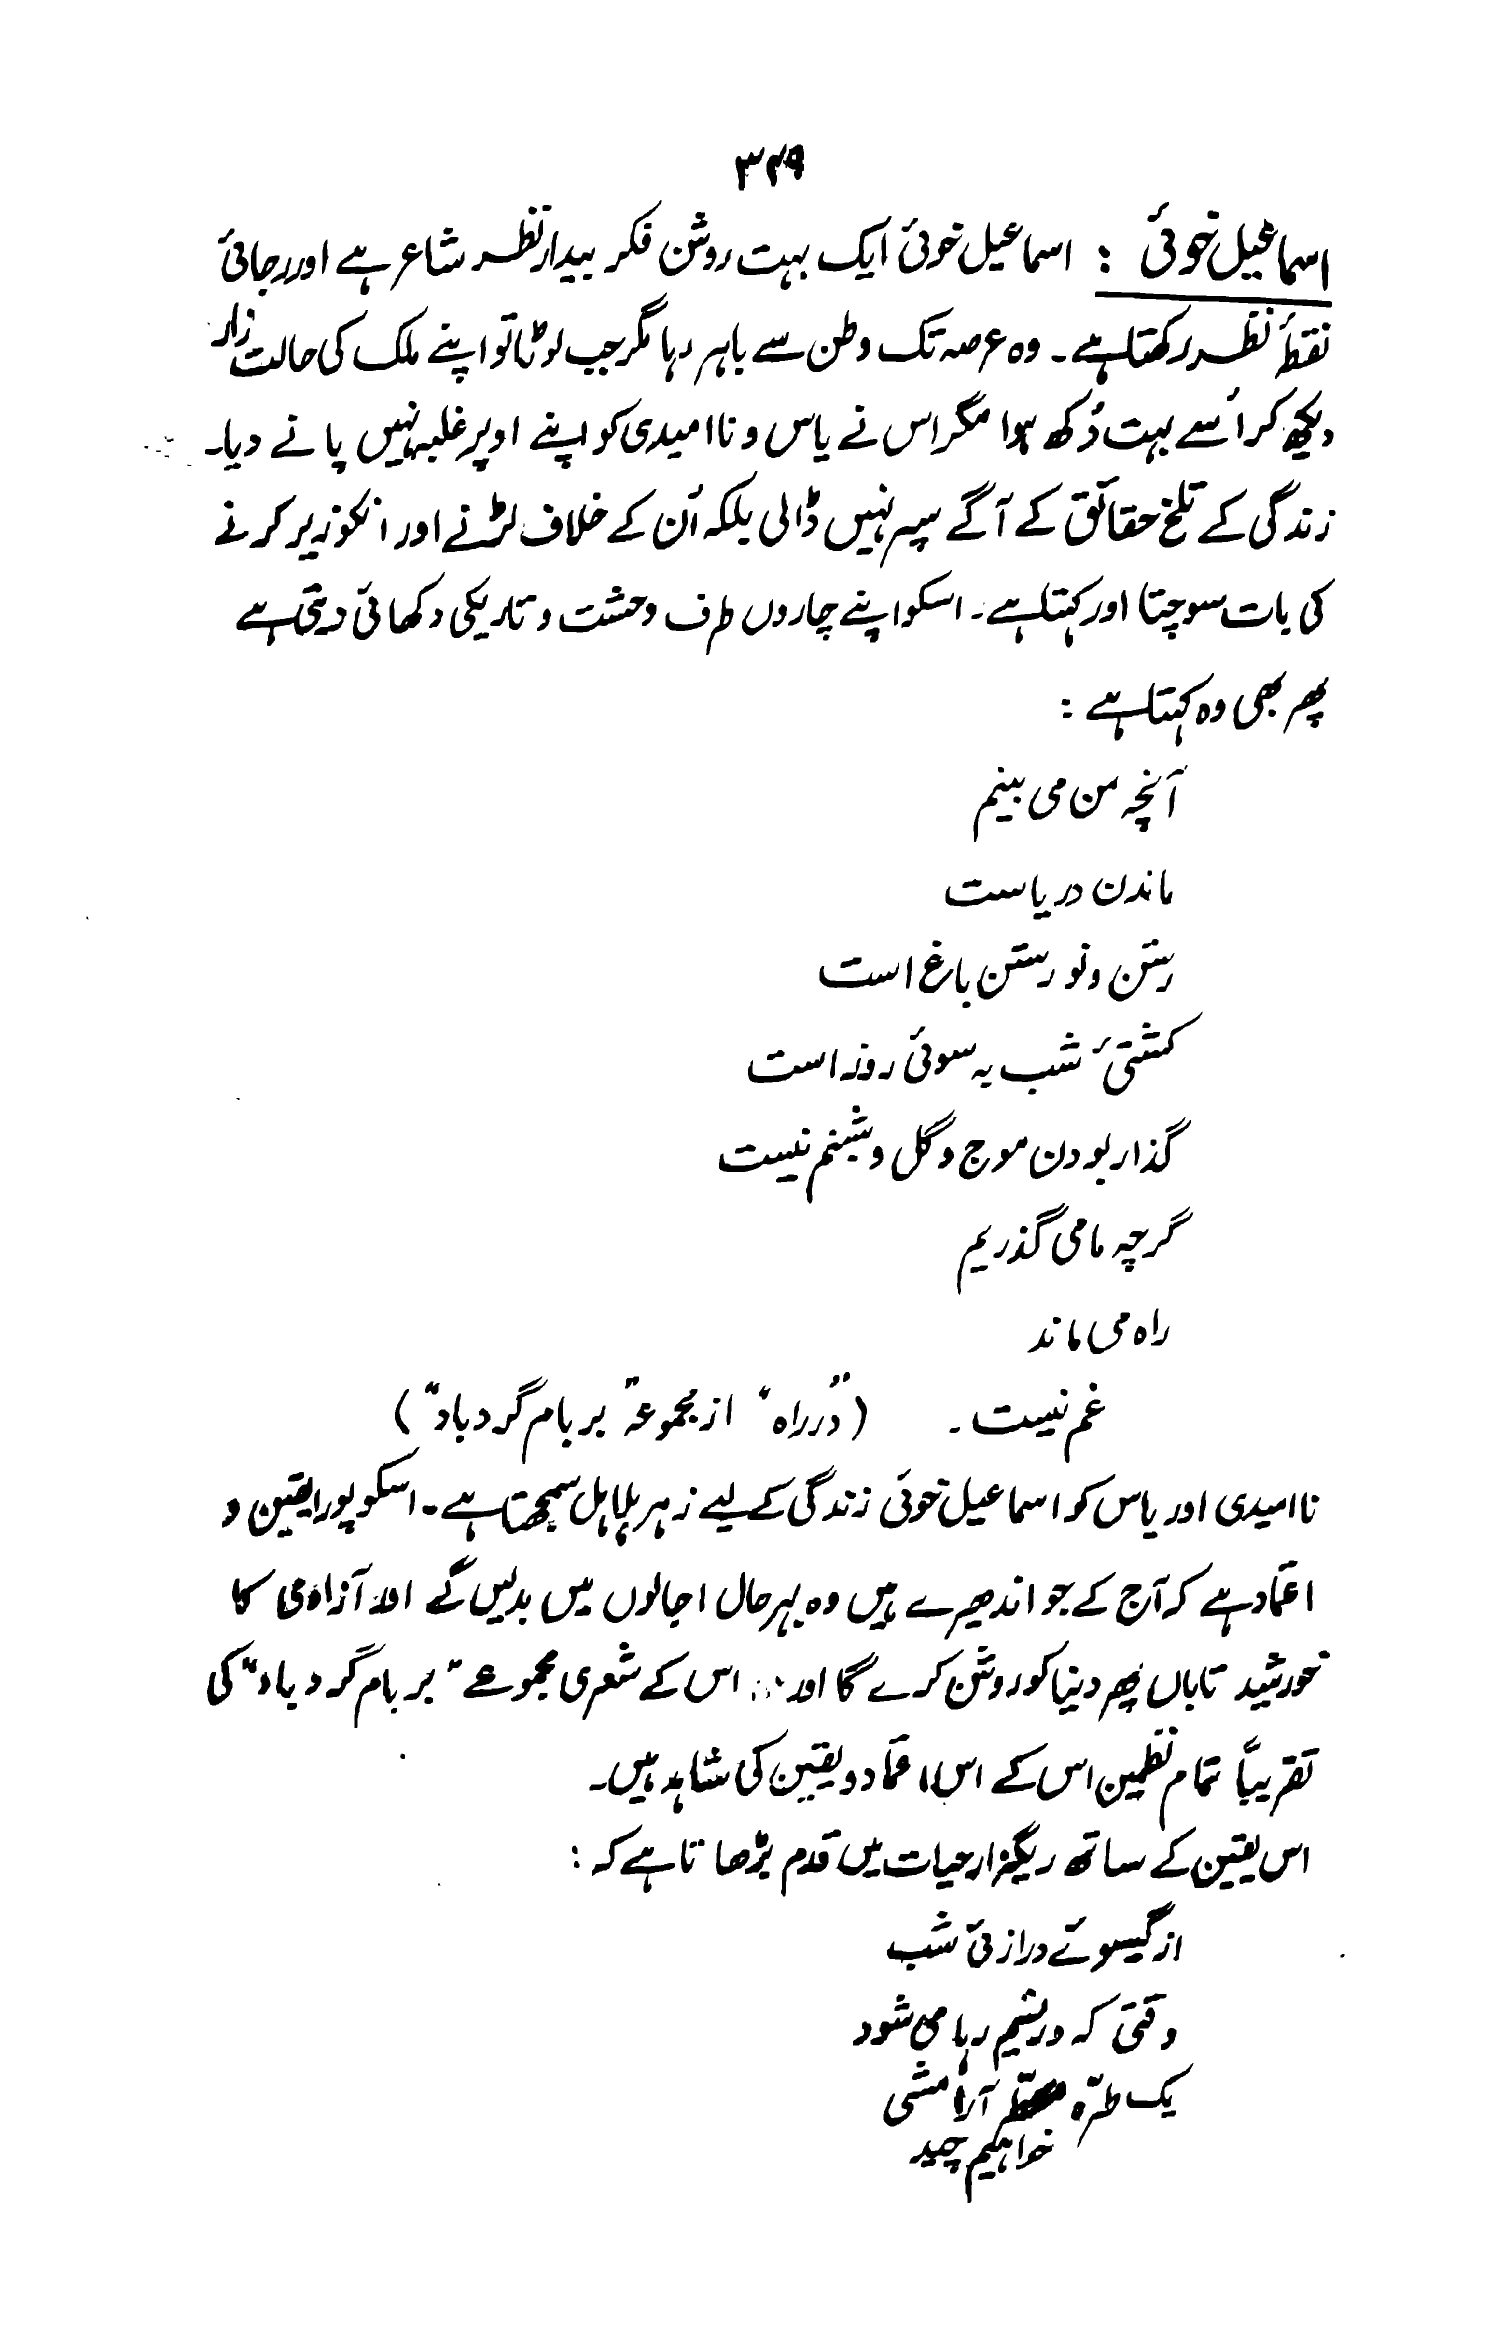 ۳۴۹
اسماعیل خوئی : اسماعیل خوئی ایک بہت روشن فکر بیدار نظر شاعر ہے اور رجائی
نقطۂ نظر رکھتا ہے ۔ وہ عرصہ تک وطن سے باہر رہا مگر جب لوٹا تو اپنے ملک کی حالت زار
دیکھ کر اُسے بہت دُکھ ہوا مگر اس نے یاس و ناامیدی کو اپنے اوپر غلبہ نہیں پانے دیا۔
زندگی کے تلخ حقائق کے آگے سپر نہیں ڈالی بلکہ اُن کے خلاف لڑنے اور انکو زیر کرنے
کی بات سوچتا اور کہتا ہے ۔ اسکو اپنے چاروں طرف وحشت و تاریکی دکھائی دیتی ہے
پھر بھی وہ کہتا ہے :
آنچہ من می بینم
ماندن دریاست
رستن و نو رستن باغ است
کشتیٔ شب بہ سوئی روز است
گذار بودن موج و گل و شبنم نیست
گرچہ مامی گذریم
راہ می ماند
غم نیست ۔ (“در راہ“ از مجموعہ ”بر بام گرد باد“)
ناامیدی اور یاس کو اسماعیل خوئی زندگی کے لیے زہر ہلاہل سمجھتا ہے ۔ اسکو پورا یقین و
اعتماد ہے کہ آج کے جو اندھیرے ہیں وہ بہرحال اجالوں میں بدلیں گے اور آزادی کا
خورشید تاباں پھر دنیا کو روشن کرے گا اور اس کے شعری مجموعے ”بر بام گرد باد“ کی
تقریباً تمام نظمیں اس کے اس اعتماد و یقین کی شاہد ہیں ۔
اس یقین کے ساتھ ریگزار حیات میں قدم بڑھا تا ہے کہ :
از گیسوئے درازئی شب
وقتی کہ در نسیم رہا می شود
یک طرّہ آرامشی
خواہیم چید